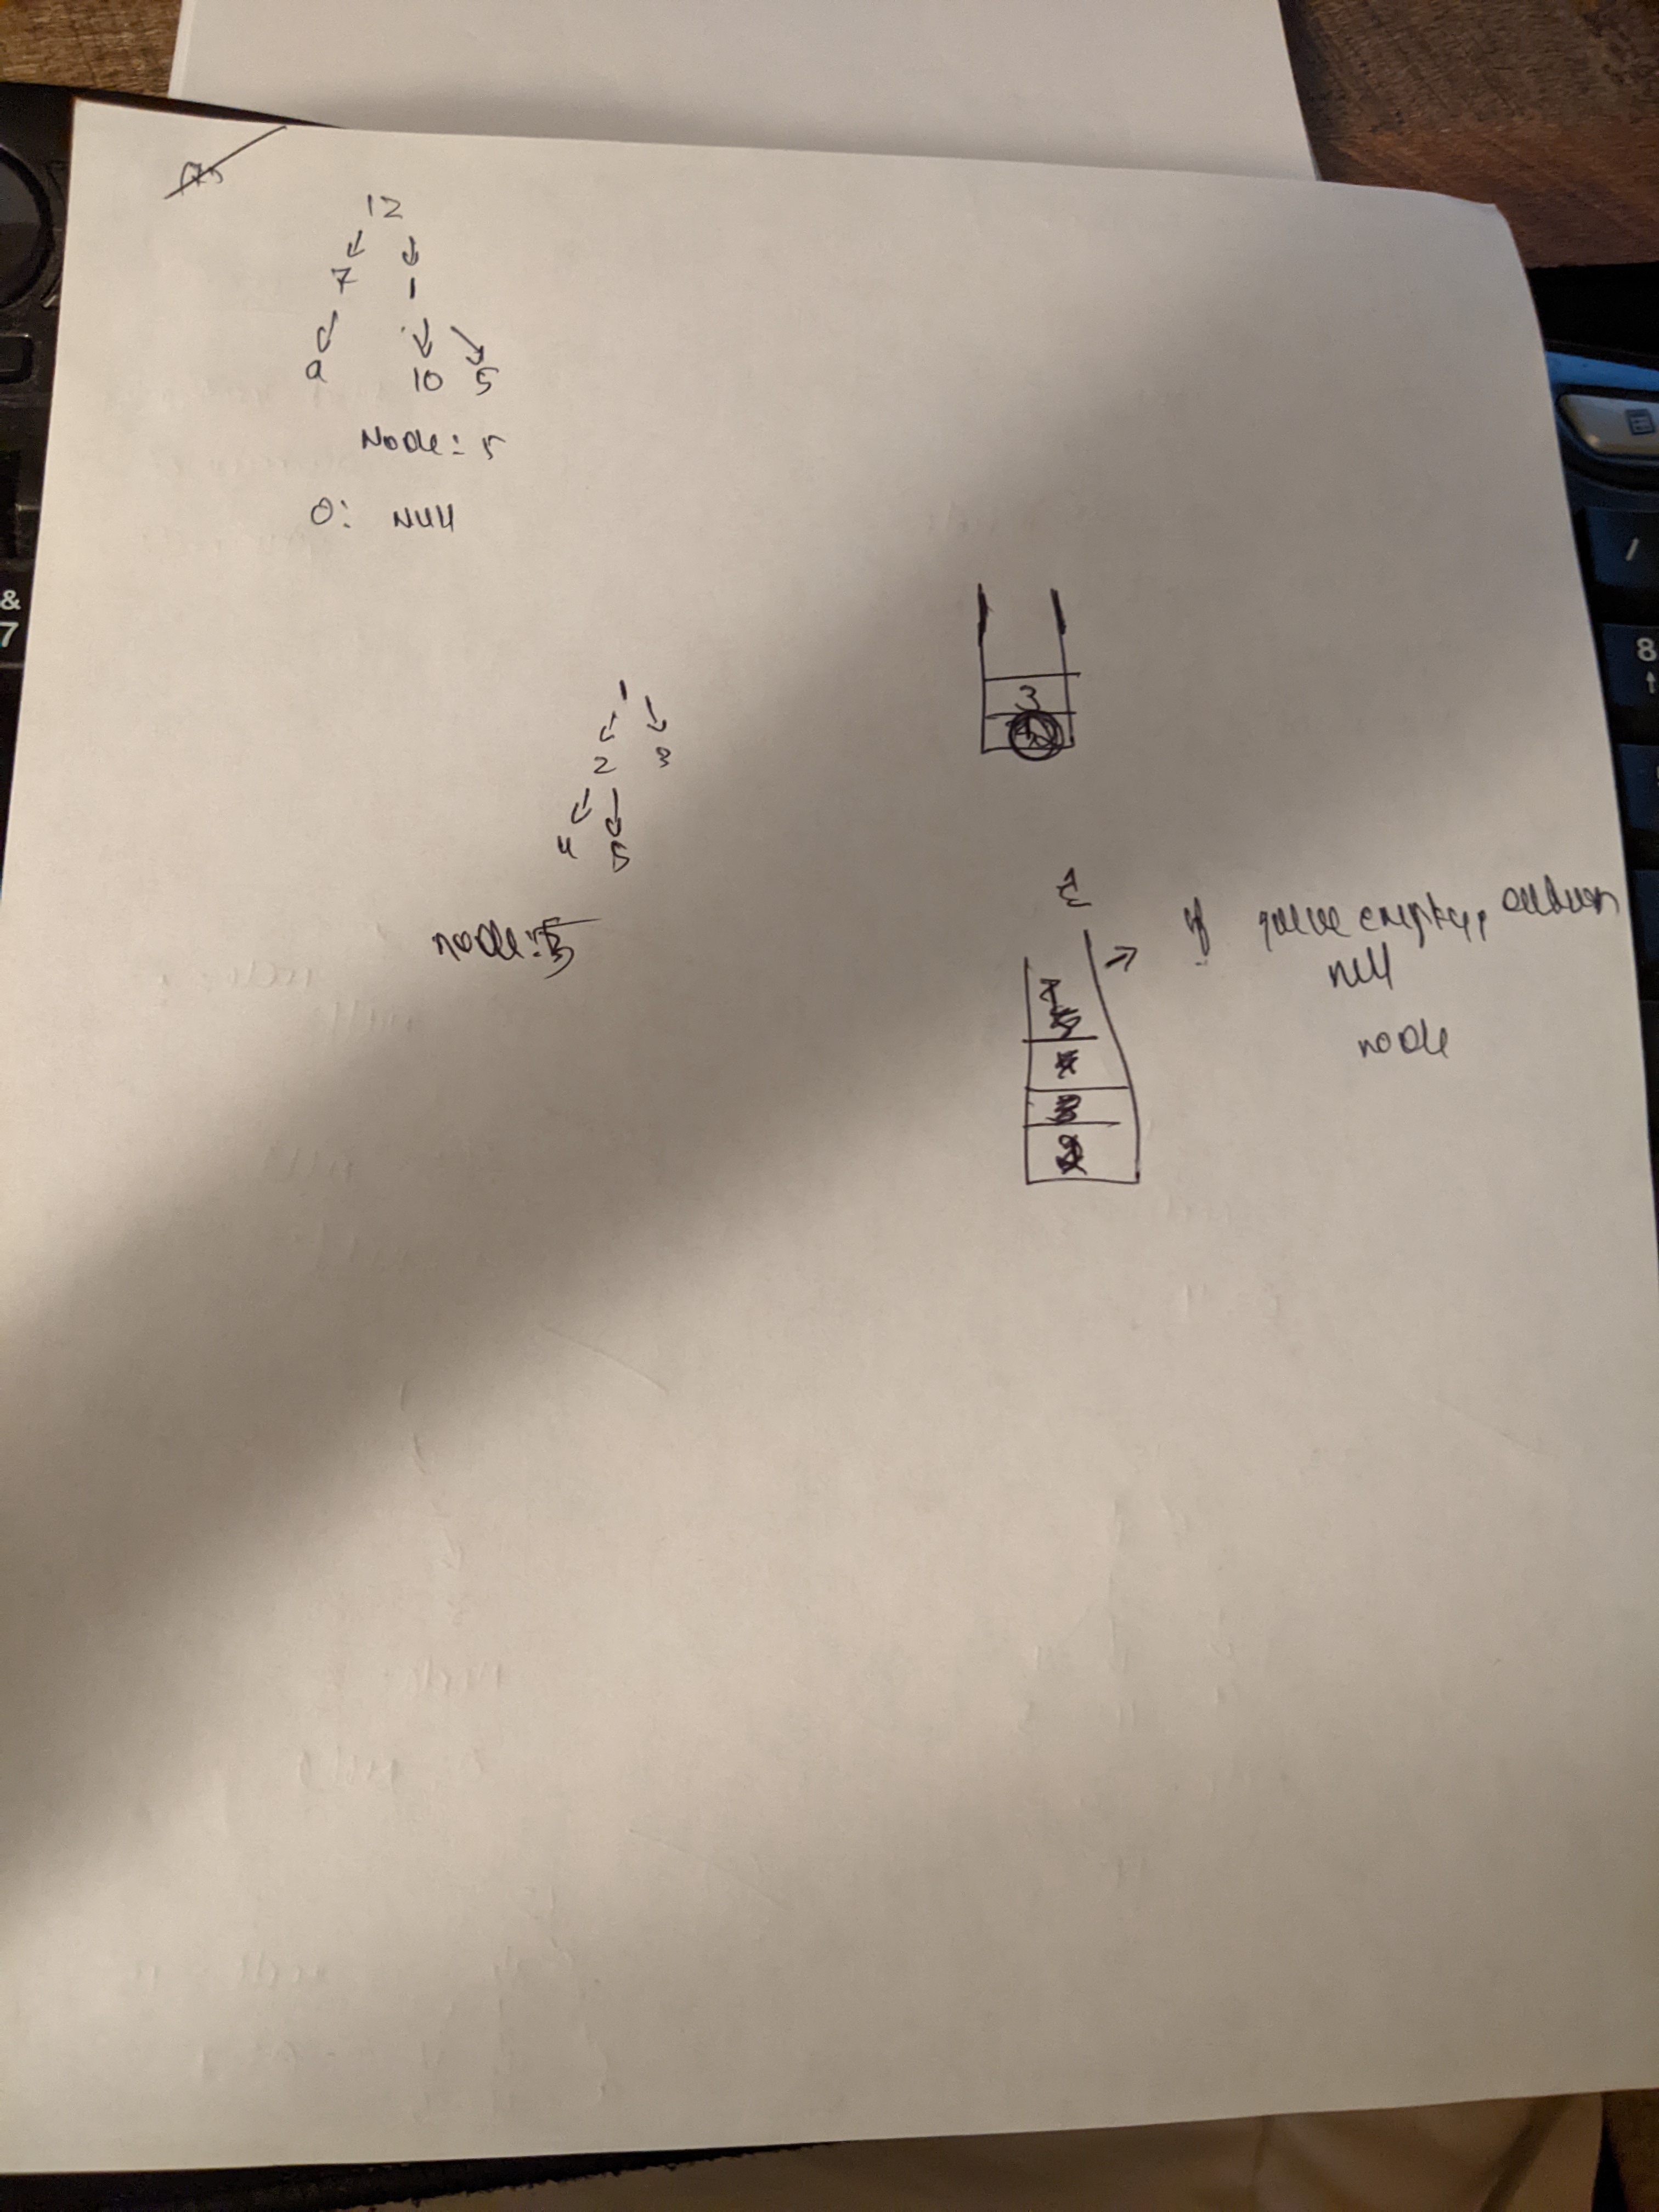 12
7 1
9 10 5
Node: 5
O: Null
1
2 3
4 5
node:
3
if queue empty, return
null
node
&
7
/
8